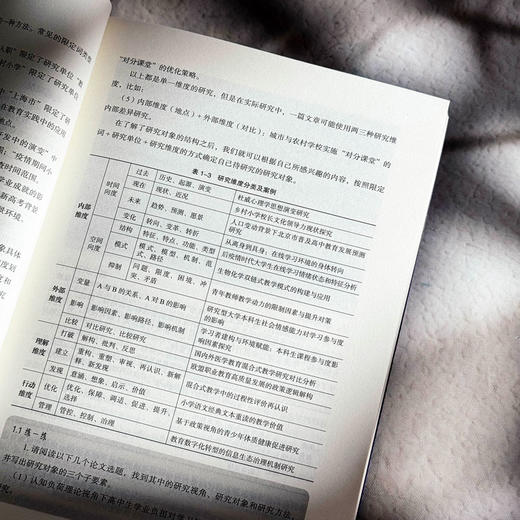 一种方法。常见的限定词类型
限定了研究单位“教
小学”限定了研究单
“上海市”限定了研
在教育实践中的应用
开发中的演变”中
“疫情期间小
查时间范围。
业成就的影
新高考背景
限环境、
象具体
度划
“对分课堂”的优化策略。
以上都是单一维度的研究，但是在实际研究中，一篇文章可能使用两三种研究维
度，比如：
（5）内部维度（地点）+外部维度（对比）：城市与农村学校实施“对分课堂”的
内部差异研究。
在了解了研究对象的结构之后，我们就可以根据自己所感兴趣的内容，按照限定
词+研究单位+研究维度的方式确定自己待研究的研究对象。
表 1-3 研究维度分类及案例
内部维度 时间向度 过去 历史、起源、演变 杜威心理学思想演变研究
现在 现状、近况 乡村小学校长文化领导力现状探究
未来 趋势、预测、愿景 人口变动背景下北京市普及高中教育发展预测研究
空间向度 变化 转向、变革、转折 从离身到具身：在线学习环境的身体转向
结构 特征、特点、功能、类型 后疫情时代大学生在线学习情绪状态和特征分析
模式 模式、模型、机制、范式、路径 生物化学双链式教学模式的构建与应用
抑制 问题、限度、困境、冲突、矛盾 青年教师教学动力的限制因素与提升对策
外部维度 变量 A与B的关系、A对B的影响 研究型大学本科生社会情感能力对学习参与度的影响
影响 影响因素、影响路径、影响机制 学习者建构与环境赋能：本科生课程参与度影响因素探究
比较 对比研究、比较研究 国内外医学教育混合式教学研究对比分析
理解维度 打破 解构、批判、反思 欧盟职业教育高质量发展的政策逻辑解构
建立 重构、重塑、审视、再认识、新解释、新发现 混合式教学中的过程性评价再认识
发现 意涵、想象、启示、价值 小学语文经典文本重读的教学价值
行动维度 优化 优化、保障、调适、促进、提升、选择 基于政策视角的青少年体质健康促进研究
管理 管控、控制、治理 教育数字化转型的信息生态治理机制研究
1.1 练一练
1. 请阅读以下几个论文选题，找到其中的研究视角、研究对象和研究方法，
并写出研究对象的三个子要素。
（1）认知负荷理论视角下高中生学业负担对学习